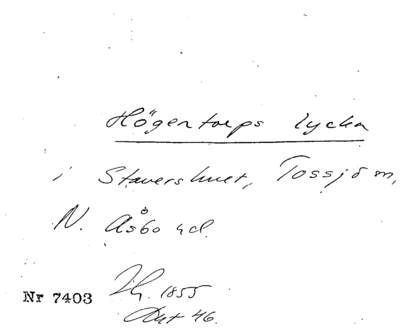 Högentorps lycka
i Stavershult, Tossjö sn,
N. Åsbo hd.
Nr 7403 Th. 1855
Akt 46.